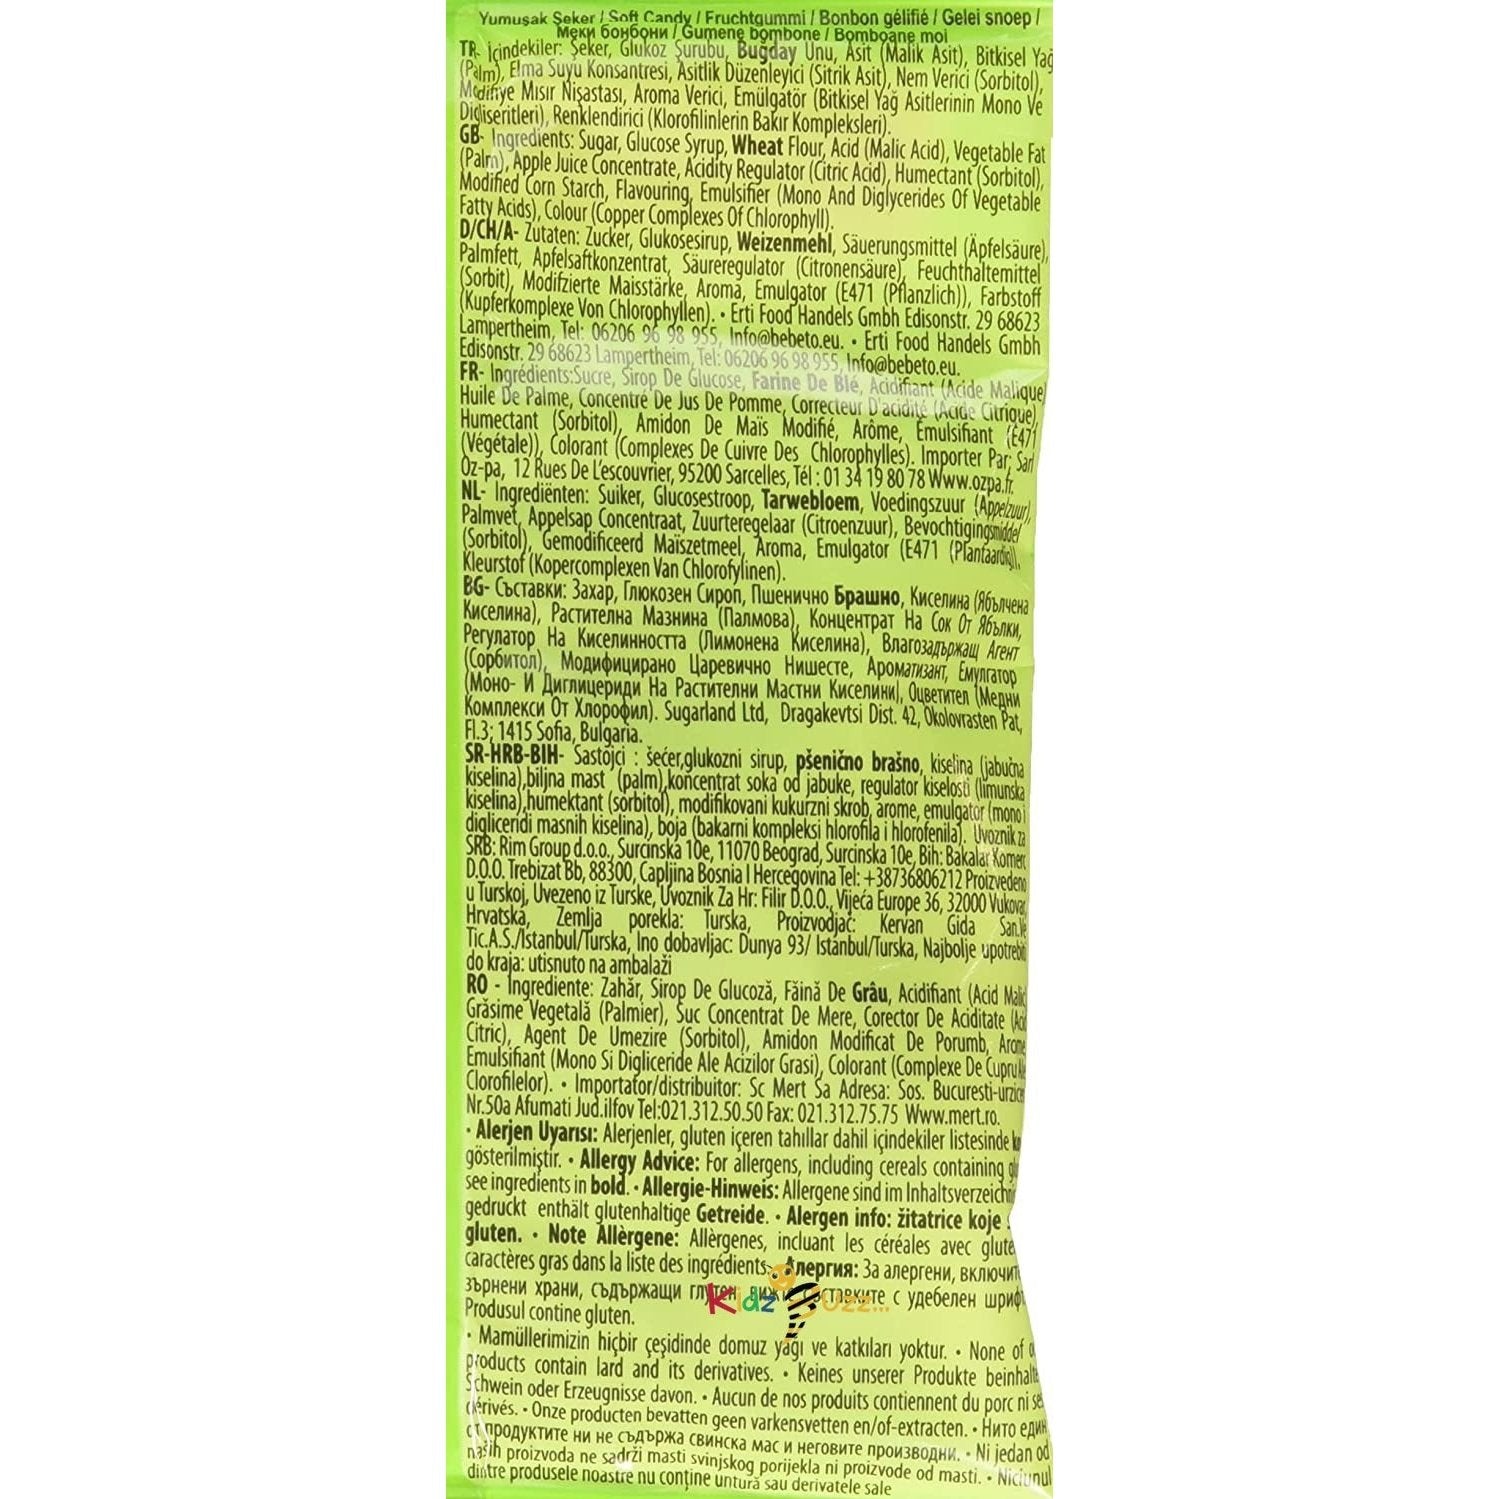 Yumuşak Şeker / Soft Candy / Fruchtgummi / Bonbon gélifié / Gelei snoep /
Меки бонбони / Gumene bombone / Bomboane moi
TR- İçindekiler: Şeker, Glukoz Şurubu, Buğday Unu, Asit (Malik Asit), Bitkisel Yağ
(Palm), Elma Suyu Konsantresi, Asitlik Düzenleyici (Sitrik Asit), Nem Verici (Sorbitol),
Modifiye Mısır Nişastası, Aroma Verici, Emülgatör (Bitkisel Yağ Asitlerinin Mono Ve
Digliseritleri), Renklendirici (Klorofilinlerin Bakır Kompleksleri).
GB- Ingredients: Sugar, Glucose Syrup, Wheat Flour, Acid (Malic Acid), Vegetable Fat
(Palm), Apple Juice Concentrate, Acidity Regulator (Citric Acid), Humectant (Sorbitol),
Modified Corn Starch, Flavouring, Emulsifier (Mono And Diglycerides Of Vegetable
Fatty Acids), Colour (Copper Complexes Of Chlorophyll).
D/CH/A- Zutaten: Zucker, Glukosesirup, Weizenmehl, Säuerungsmittel (Äpfelsäure),
Palmfett, Apfelsaftkonzentrat, Säureregulator (Citronensäure), Feuchthaltemittel
(Sorbit), Modifzierte Maisstärke, Aroma, Emulgator (E471 (Pflanzlich)), Farbstoff
(Kupferkomplexe Von Chlorophyllen). • Erti Food Handels Gmbh Edisonstr. 29 68623
Lampertheim, Tel: 06206 96 98 955, Info@bebeto.eu. • Erti Food Handels Gmbh
Edisonstr. 29 68623 Lampertheim, Tel: 06206 96 98 955, Info@bebeto.eu.
FR- Ingrédients:Sucre, Sirop De Glucose, Farine De Blé, Acidifiant (Acide Malique)
Huile De Palme, Concentré De Jus De Pomme, Correcteur D'acidité (Acide Citrique)
Humectant (Sorbitol), Amidon De Maïs Modifié, Arôme, Émulsifiant (E471
(Végétale)), Colorant (Complexes De Cuivre Des Chlorophylles). Importer Par; Sarl
Oz-pa, 12 Rues De L'escouvrier, 95200 Sarcelles, Tél : 01 34 19 80 78 Www.ozpa.fr.
NL- Ingrediënten: Suiker, Glucosestroop, Tarwebloem, Voedingszuur (Appelzuur),
Palmvet, Appelsap Concentraat, Zuurteregelaar (Citroenzuur), Bevochtigingsmiddel
(Sorbitol), Gemodificeerd Maïszetmeel, Aroma, Emulgator (E471 (Plantaardig)),
Kleurstof (Kopercomplexen Van Chlorofylinen).
BG- Съставки: Захар, Глюкозен Сироп, Пшенично Брашно, Киселина (Ябълчена
Киселина), Растителна Мазнина (Палмова), Концентрат На Сок От Ябълки,
Регулатор На Киселинността (Лимонена Киселина), Влагозадържащ Агент
(Сорбитол), Модифицирано Царевично Нишесте, Ароматизант, Емулгатор
(Моно- И Диглицериди На Растителни Мастни Киселини), Оцветител (Медни
Комплекси От Хлорофил). Sugarland Ltd, Dragakevtsi Dist. 42, Okolovrasten Pat,
Fl.3; 1415 Sofia, Bulgaria.
SR-HRB-BIH- Sastojci : šećer,glukozni sirup, pšenično brašno, kiselina (jabučna
kiselina),biljna mast (palm),koncentrat soka od jabuke, regulator kiselosti (limunska
kiselina),humektant (sorbitol), modifikovani kukurzni skrob, arome, emulgator (mono i
digliceridi masnih kiselina), boja (bakarni kompleksi hlorofila i hlorofenila). Uvoznik za
SRB: Rim Group d.o.o., Surcinska 10e, 11070 Beograd, Surcinska 10e, Bih: Bakalar Komerc
D.O.O. Trebizat Bb, 88300, Capljina Bosnia I Hercegovina Tel: +38736806212 Proizvedeno
u Turskoj, Uvezeno iz Turske, Uvoznik Za Hr: Filir D.O.O., Vijeća Europe 36, 32000 Vukovar,
Hrvatska, Zemlja porekla: Turska, Proizvodjač: Kervan Gida San.Ve
Tic.A.S./Istanbul/Turska, Ino dobavljac: Dunya 93/ Istanbul/Turska, Najbolje upotrebiti
do kraja: utisnuto na ambalaži
RO - Ingrediente: Zahăr, Sirop De Glucoză, Făină De Grâu, Acidifiant (Acid Malic)
Grăsime Vegetală (Palmier), Suc Concentrat De Mere, Corector De Aciditate (Acid
Citric), Agent De Umezire (Sorbitol), Amidon Modificat De Porumb, Arome
Emulsifiant (Mono Si Digliceride Ale Acizilor Grasi), Colorant (Complexe De Cupru Ale
Clorofilelor). • Importator/distribuitor: Sc Mert Sa Adresa: Sos. Bucuresti-urzicen
Nr.50a Afumati Jud.ilfov Tel:021.312.50.50 Fax: 021.312.75.75 Www.mert.ro.
• Alerjen Uyarısı: Alerjenler, gluten içeren tahıllar dahil içindekiler listesinde
gösterilmiştir. • Allergy Advice: For allergens, including cereals containing
see ingredients in bold. • Allergie-Hinweis: Allergene sind im Inhaltsverzeichn
gedruckt enthält glutenhaltige Getreide. • Alergen info: žitatrice koje
gluten. • Note Allèrgene: Allèrgenes, incluant les céréales avec glute
caractères gras dans la liste des ingrédients. • Алергия: За алергени, включит
зърнени храни, съдържащи глутен, вижте съставките с удебелен шрифт
Kidz Buzz...
Produsul contine gluten.
• Mamüllerimizin hiçbir çeşidinde domuz yağı ve katkıları yoktur. • None of
products contain lard and its derivatives. • Keines unserer Produkte beinhalte
Schwein oder Erzeugnisse davon. • Aucun de nos produits contiennent du porc ni ses
dérivés. • Onze producten bevatten geen varkensvetten en/of-extracten. • Нито един
от продуктите ни не съдържа свинска мас и неговите производни. • Ni jedan od
naših proizvoda ne sadrži masti svinjskog porijekla ni proizvode od masti. • Niciunul
dintre produsele noastre nu conține untură sau derivatele sale